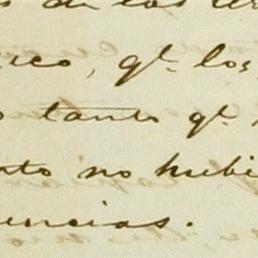 s de los
co, qe. los
tanto qe.
to no hubi
uencias.